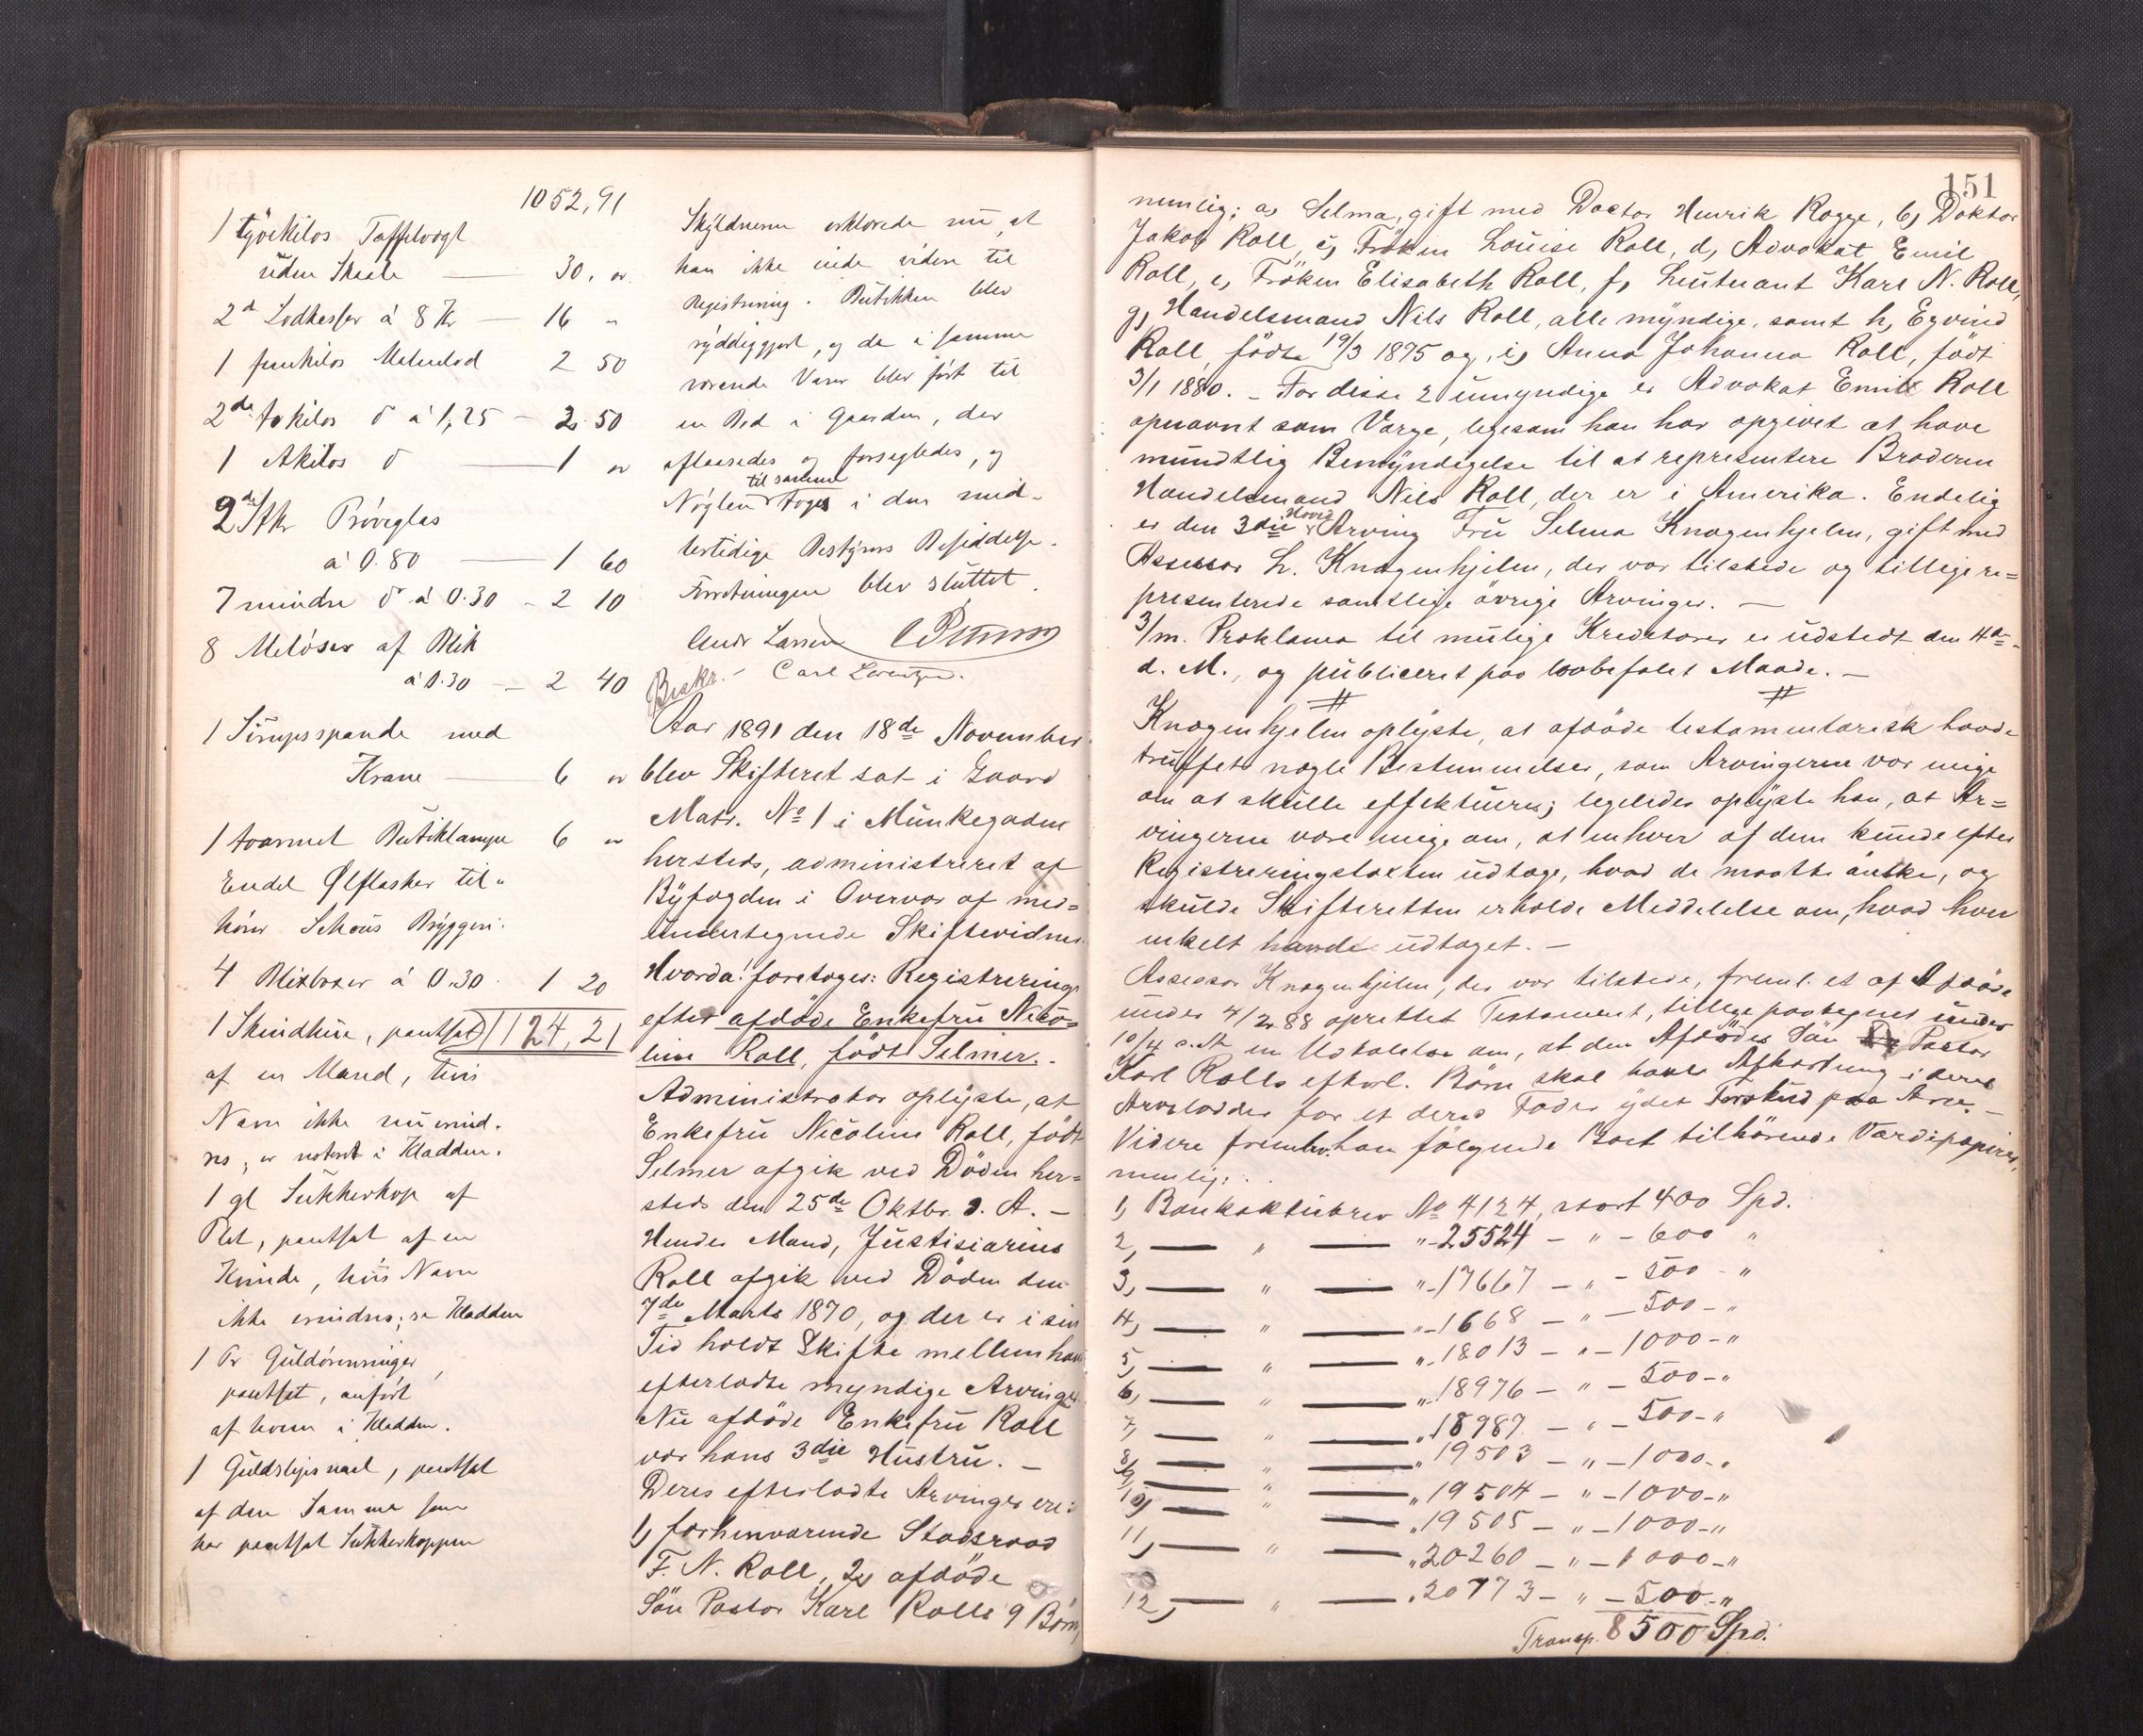 1052,91
1 tyvekilos Taffelvægt
uden Skaale — 30, "
2de Lodkasser á 8 Kr — 16 "
1 femkilos Metallod 2 50
2de tokilos do á 1,25 — 2. 50
1 Akilos do — 1 "
2de Stkr Prøveglas
á 0.80 — 1 60
7 mindre do á 0.30 - 2 10
8 Melöser af Blik
á 0.30 — 2 40
1 Sirupsspande med
Krane — 6 "
1 toarmet Butiklampe 6 "
Endel Ølflasker til-
hører Schous Bryggeri.
4 Blikboxer á 0.30. 1 20
1 Skindhue, pantsat 1124,21
af en Mand, hvis
Navn ikke nu erind-
res, er noteret i Kladden.
1 gl Sukkerkop af
Plet, pantsat af en
Kvinde, hvis Navn
ikke erindres; se Kladden
1 Pr Guldörenringer,
pantsat, anført
af hvem i Kladden.
1 Guldslipsnaal, pantsat
af den Samme som
har pantsat Sukkerkoppen
Skyldneren erklærede nu, at
han ikke eiede videre til
Registrering. Butikken blev
ryddiggjort, og de i samme
værende Varer blev ført til
en Bod i Gaarden, der
aflaasedes og forsegledes, og
Nøglen til samme toges i den mid-
lertidige Bestyrers Besiddelse.
Forretningen blev sluttet.
Andr Larsen
Beskr. - Carl Lorentzen.
Aar 1891 den 18de November
blev Skifteret sat i Gaard
Matr. No 1 i Munkegaden
hersteds, administreret af
Byfogden i Overvær af med-
undertegnede Skiftevidner.
Hvorda! foretoges: Registrering
efter afdöde Enkefru Nico-
line Roll, född Selmer.
Administrator oplyste, at
Enkefru Nicoline Roll, født
Selmer afgik ved Döden her-
steds den 25de Oktbr. d. A. —
Hendes Mand, Justisiarius
Roll afgik ved Döden den
7de Marts 1870, og der er i sin
Tid holdt Skifte mellem hans
efterladte myndige Arvinger.
Nu afdöde Enkefru Roll
var hans 3die Hustru. —
Deres efterladte Arvinger ere:
1, forhenværende Stadsraad
F. N. Roll, 2, afdöde
Sön Pastor Karl Rolls 9 Börn,
151
nemlig: a, Selma, gift med Doctor Henrik Rogge, b, Doktor
Jakob Roll, c, Fröken Louise Roll, d, Advokat Emil
Roll, e, Fröken Elisabeth Roll, f, Lieutenant Karl N. Roll,
g, Handelsmand Nils Roll, alle myndige, samt h, Eyvind
Roll, födt 19/3 1875 og, i, Anna Johanna Roll, födt
3/1 1880. - For disse 2 umyndige er Advokat Emil Roll
opnævnt som Værge, ligesom han har opgivet at have
mundtlig Bemyndigelse til at representere Broderen
Handelsmand Nils Roll, der er i Amerika. Endelig
er den 3die Hoved Arving Fru Selma Knagenhjelm, gift med
Assessor L. Knagenhjelm, der var tilstede og tillige re=
presenterede samtlige övrige Arvinger. —
3/m. Proklama til mulige Kreditorer er udstedt den 4de
d. M., og publiceret paa lovbefalet Maade. —
Knagenhjelm oplyste, at afdöde testamentarisk havde
truffet nogle Bestemmelser, som Arvingerne var enige
om at skulle effektueres; ligeledes oplyste han, at Ar=
vingerne vare enige om, at enhver af dem kunde efter
Registreringstaxten udtage, hvad de maatte önske, og
skulde Skifteretten erholde Meddelelse om, hvad hver
enkelt havde udtaget. —
Assessor Knagenhjelm, der var tilstede, freml. et af Afdöde
under 4/2 88 oprettet Testament, tillige paategnet under
10/4 s. A en Udtalelse om, at den Afdödes Sön Pastor
Karl Rolls efterl. Börn skal have Afkortning i deres
Arvelodder for et deres Fader ydet Forskud paa Arv. —
Videre fremlev. han fölgende Boet tilhörende Værdipapirer,
nemlig:
1, Bankaktiebrev No 4124, stort 400 Spd.
2, — " — " 25524 — " — 600 "
3, — " — " 17667 — " — 500 — "
4, — " — " 1668 — " — 500 — "
5, — " — " 18013 — " — 1000 — "
6, — " — " 18976 — " — 500 — "
7, — " — " 18987 — " — 500 — "
8, — " — " 19503 — " — 1000 — "
9, — " — " 19504 — " — 1000 — "
10, — " — " 19505 — " — 1000 — "
11, — " — " 20260 — " — 1000 — "
12, — " — " 20773 — " — 500 — "
Transp. 8500 Spd.